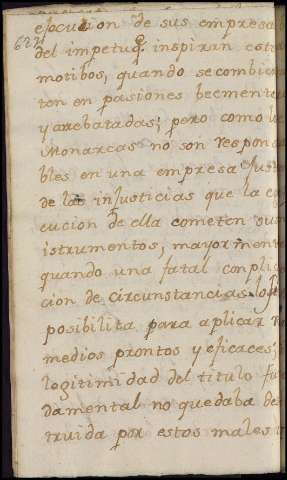 ejecucion de sus empresa
622
del impetu q̃. inspiran esto
motibos, quando se combier
ten en pasiones becmente
y arrebatadas; pero como lo
Monarcas no son respons
bles en una empresa Just
de las injusticias que la eje
cucion de ella cometen sus
istrumentos, mayormente
quando una fatal conplica
cion de circunstancias los
posibilita para aplicar r
medios prontos y eficaces;
logitimidad del titulo Fu
damental no quedaba de
truida por estos males